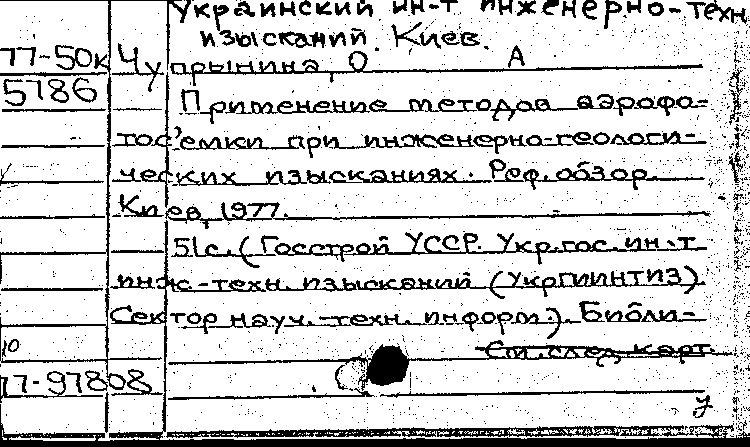 Украинский ин-т инженерно-техн.
изысканий. Киев.
77-50к Чупрынина, О А
5786
Применение методов аэрофо-
тосъемки при инженерно-геологи-
ческих изысканиях. Реф. обзор.
Киев, 1977.
51с. (Госстрой УССР. Укр.гос.ин-т
инж.-техн. изысканий (УкрГИИНТИЗ).
Сектор науч.-техн. информ.). Библи-
См. след. карт.
10
77-97808